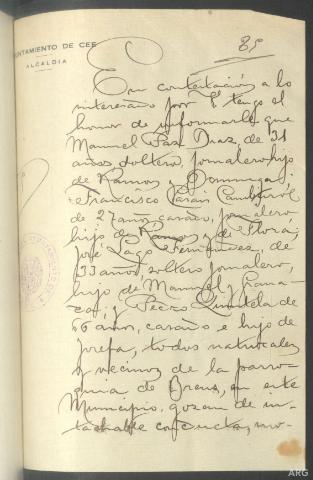 AYUNTAMIENTO DE CEE
ALCALDIA
85
En contestación a lo
interesado por V. tengo el
honor de informarle que
Manuel Paz Diaz, de 31
años, soltero, jornalero hijo
de Ramón y Dominga;
Francisco
de 27 años casado, jornalero
hijo de Ramón y de Flora;
José Lago Fernández, de
33 años, soltero jornalero,
hijo de Manuel y
y Pedro Quintela de
66 años, casado e hijo de
Josefa, todos naturales
y vecinos de la parro-
quia de Brens, en este
Municipio, gozan de in-
tachable conducta, mo-
ARG